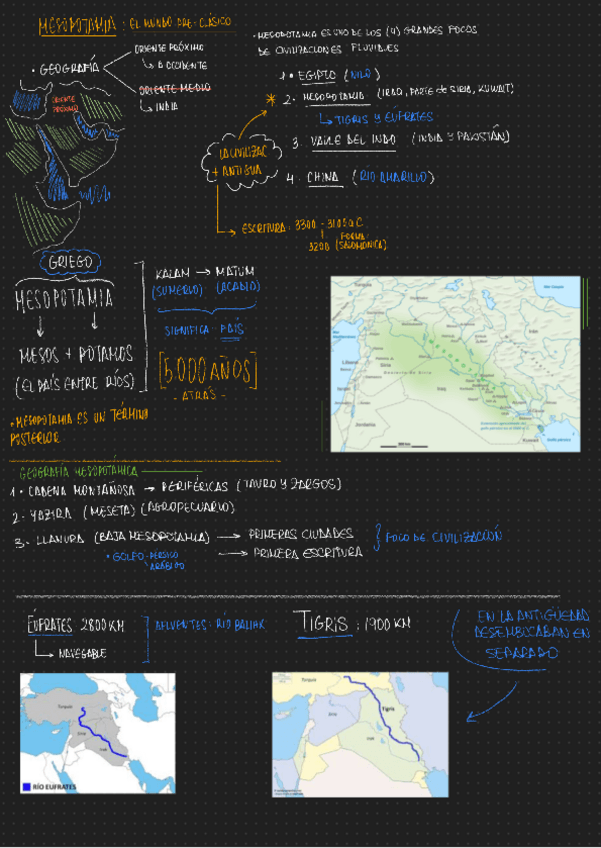 MESOPOTAMIA: EL MUNDO PRE-CLÁSICO
• GEOGRAFÍA
ORIENTE PRÓXIMO
↳ A OCCIDENTE
ORIENTE MEDIO
↳ INDIA
ORIENTE PRÓXIMO
• MESOPOTAMIA ES UNO DE LOS (4) GRANDES FOCOS
DE CIVILIZACIONES FLUVIALES
1 • EGIPTO (NILO)
* 2. MESOPOTAMIA (IRAQ, PARTE de SIRIA, KUWAIT)
↳ TIGRIS Y EÚFRATES
3. VALLE DEL INDO (INDIA Y PAKISTÁN)
4. CHINA (RIO AMARILLO)
LA CIVILIZAC
+ ANTIGUA
→ ESCRITURA: 3300 - 3105 a C
3200
GRIEGO
MESOPOTAMIA
MESOS + POTAMOS
(EL PAÍS ENTRE RÍOS)
• MESOPOTAMIA ES UN TÉRMINO
POSTERIOR
KALAM → MATUM
(SUMERIO) (ACADIO)
SIGNIFICA PAÍS
[5.000 AÑOS]
- ATRÁS -
Turquía
Siria
Iraq
Irán
Jordania
Kuwait
GEOGRAFÍA MESOPOTÁMICA
1 • CADENA MONTAÑOSA → PERIFÉRICAS (TAURO Y ZARGOS)
2 - YAZIRA (MESETA) (AGROPECUARIO)
3. LLANURA (BAJA MESOPOTAMIA) → PRIMERAS CIUDADES
→ PRIMERA ESCRITURA
} FOCO DE CIVILIZACIÓN
• GOLFO - PÉRSICO
ARÁBIGO
EÚFRATES 2800 KM
↳ NAVEGABLE
AFLUENTES: RÍO BALIAK
TIGRIS: 1900 KM
EN LA ANTIGÜEDAD
DESEMBOCABAN EN
SEPARADO
Turquía
Siria
Irak
RÍO EUFRATES
Turquía
Tigris
Siria
Irak